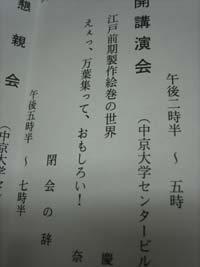 開講演会
午後二時半 ～ 五時
（中京大学センタービル
江戸前期製作絵巻の世界
慶
えぇっ、万葉集って、おもしろい！
奈
閉会の辞
懇親会
午後五時半 ～ 七時半
（中京大学セ